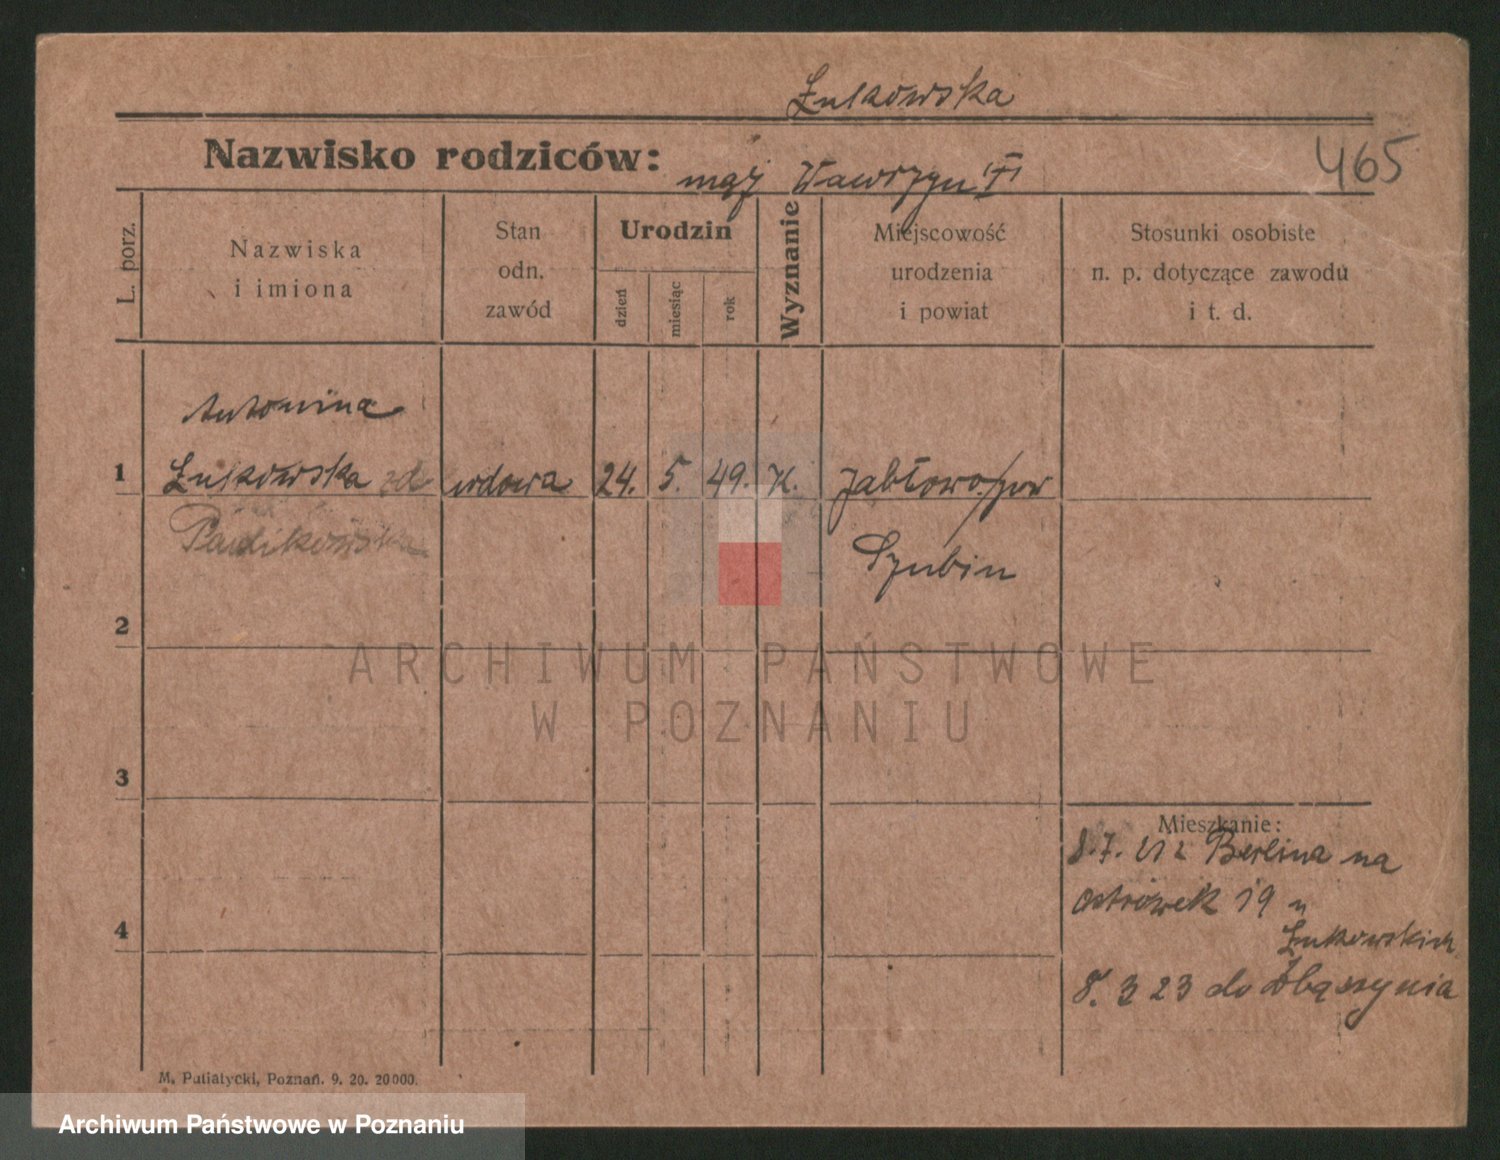 Łukowska
Nazwisko rodziców:
mąż Wawrzyn
465
L. porz.
Nazwiska
i imiona
Stan
odn.
zawód
Urodzin
dzień
miesiąc
rok
Wyznanie
Miejscowość
urodzenia
i powiat
Stosunki osobiste
n. p. dotyczące zawodu
i t. d.
Antonina
1
Łukowska zd
wdowa
24.
5.
49.
K.
Jabłowo/pow
Szubin
2
3
4
Mieszkanie:
8.7.21 z Berlina na
Ostrówek 19 u
Łukowskich
8. 3 23 do Zbąszynia
M. Putiatycki, Poznań. 9. 20. 20000.
ARCHIWUM PAŃSTWOWE
W POZNANIU
Archiwum Państwowe w Poznaniu